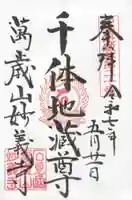 奉拝
令和六年
五月廿一日
千体地蔵尊
萬歳山妙義寺